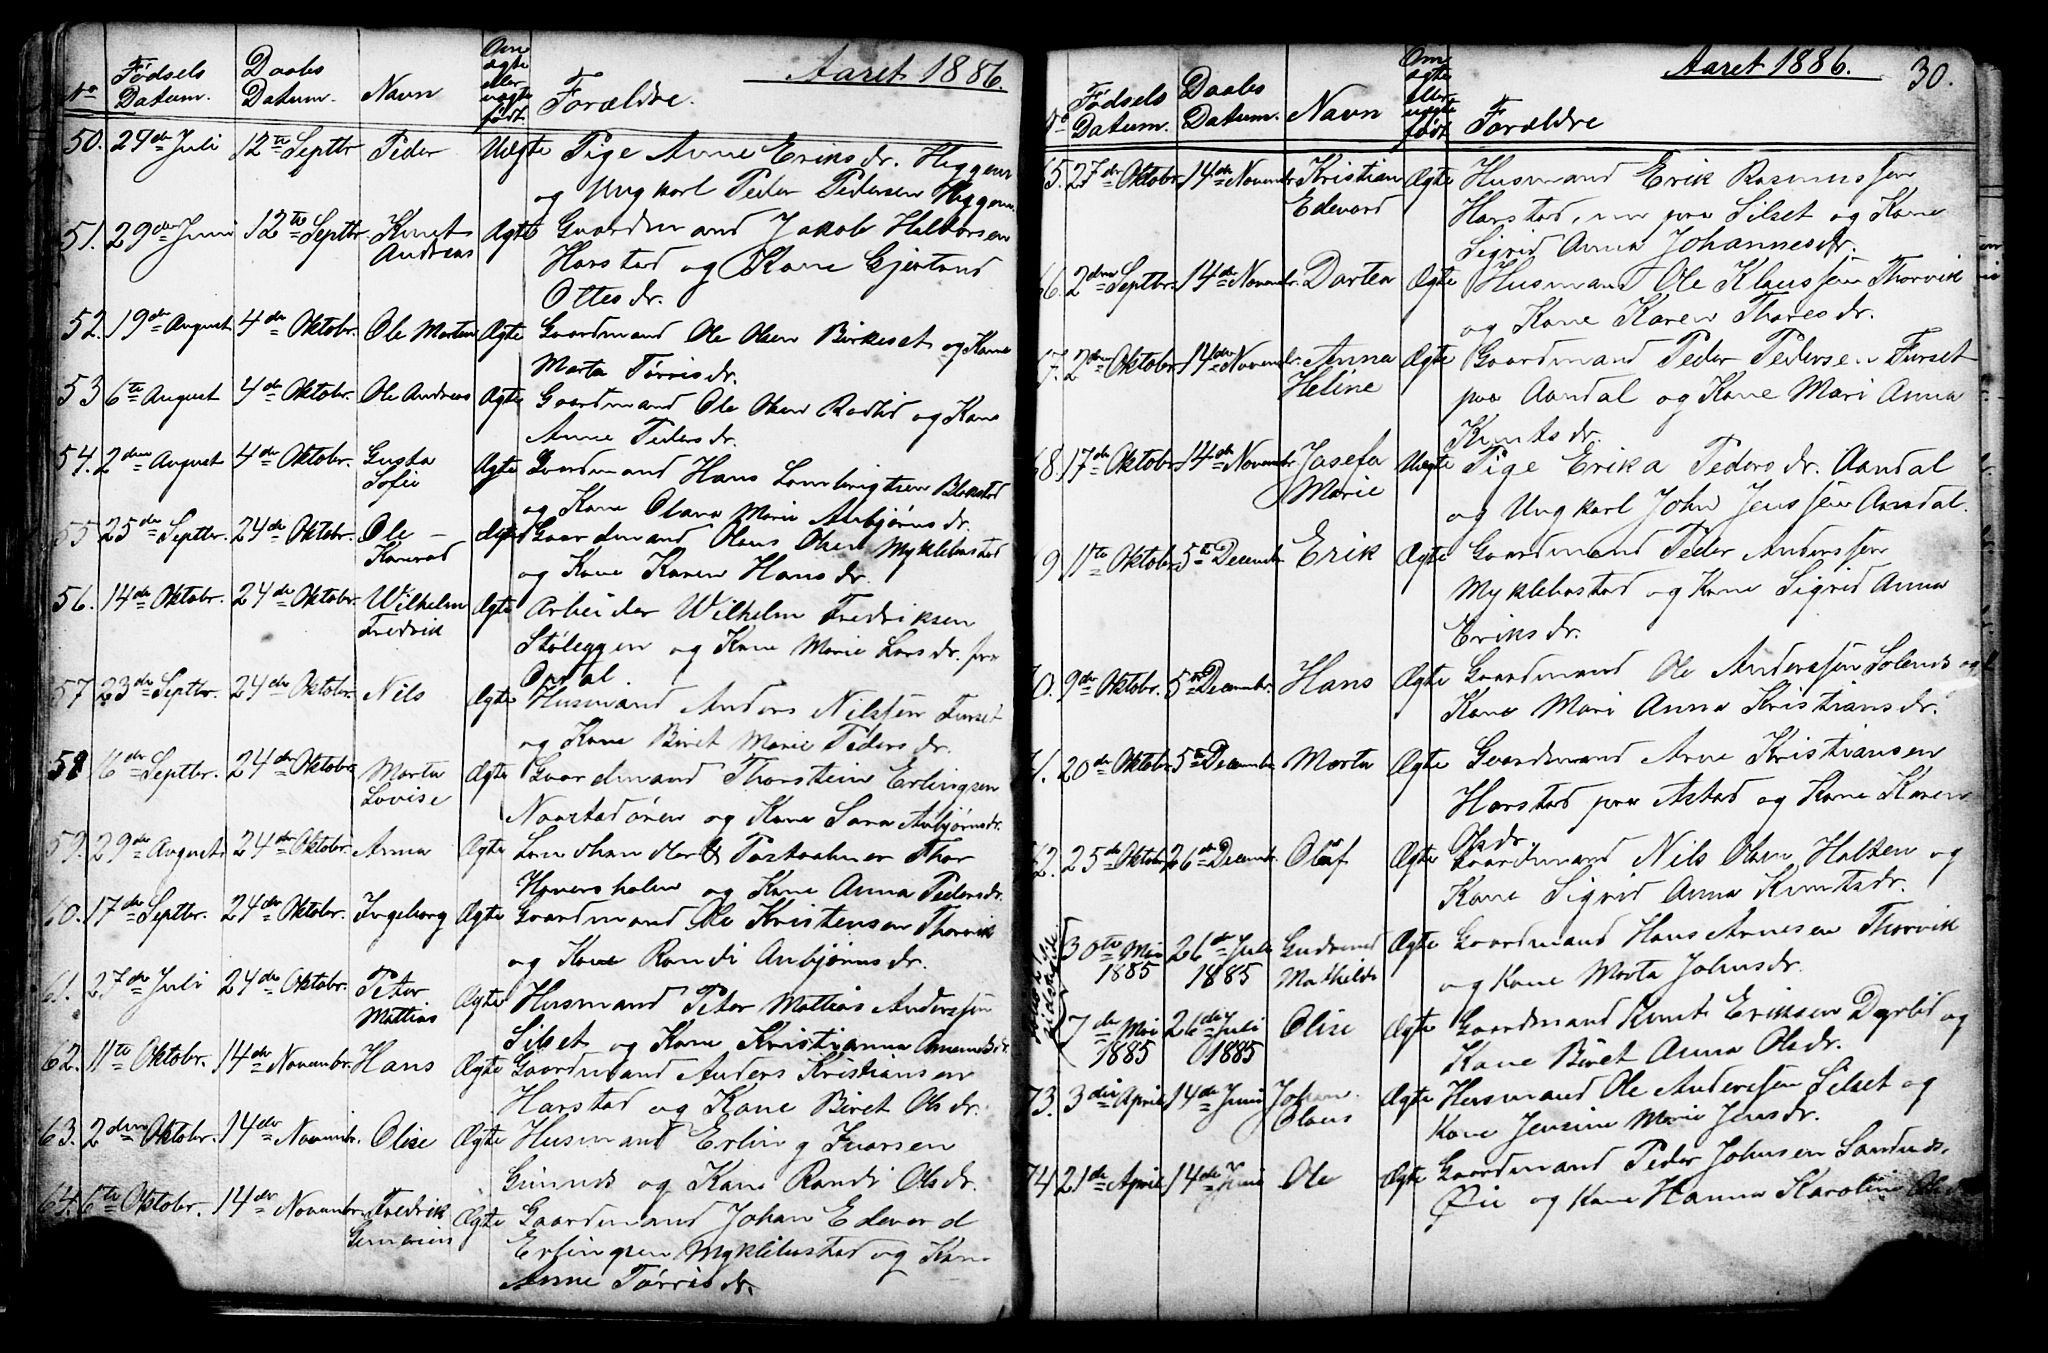 Aaret 1886.
No Fødsels Datum. Daabs Datum. Navn Om ægte eller uægte født. Forældre.
50. 29de Juli 12te Septbr Peder Uægte Pige Anne Eriksdr. Heggem
og Ungkarl Peder Pedersen Heggem.
51. 29de Juni 12te Septbr. Knut Ægte Gaardmand Jakob Halvorsen
Andreas Harstad og Kone Gjertrud
Ottesdr.
52. 19de August 4de Oktobr. Ole Martin Ægte Gaardmand Ole Olsen Birkeset og Kone
Marta Tørrisdr.
53 6te August 4de Oktobr. Ole Andreas Ægte Gaardmand Ole Olsen Rødlid og Kone
Anne Pedersdr.
54. 2den August 4de Oktobr. Gusta Ægte Gaardmand Hans Lambrigtsen Blakstad
Sofie og Kone Olava Marie Anbjørnsdr.
55 25de Septbr. 24de Oktobr. Ole Ægte Gaardmand Olaus Olsen Myklebostad
Konrad og Kone Karen Hansdr.
56. 14de Oktobr. 24de Oktobr. Wilhelm Ægte Arbeider Wilhelm Fredriksen
Fredrik Støleggen og Kone Marie Larsdr. fra
57 23de Septbr. 24de Oktobr. Nils Ægte Husmand Anders Nilssen Furset
og Kone Beret Marie Pedersdr.
58 16de Septbr. 24de Oktobr. Marta Ægte Gaardmand Thorstein Erlingsen
Lovise Naastadøren og Kone Sara Anbjørnsdr.
59. 29de August 24de Oktobr. Anna Ægte Landhandler & Postaabner Thor
Hoversholm og Kone Anna Pedersdr.
60. 17de Septbr. 24de Oktobr. Ingeborg Ægte Gaardmand Ole Kristensen Thorvik
og Kone Randi Anbjørnsdr.
61. 27de Juli 24de Oktobr. Peter Ægte Husmand Peter Mattias Anderssen
Mattias Silset og Kone Kristianna Amundsdr.
62. 11te Oktobr. 14de Novembr. Hans Ægte Gaardmand Anders Kristiansen
Harstad og Kone Beret Olsdr.
63. 2den Oktobr. 14de Novembr. Olise Ægte Husmand Erling Ivarsen
Gimnes og Kone Randi Olsdr.
64. 6te Oktobr. 14de Novembr. Fredrik Ægte Gaardmand Johan Edevard
Erlingsen Myklebostad og Kone
Anne Tørrisdr.
Aaret 1886. 30.
No Fødsels Datum. Daabs Datum. Navn Om ægte eller uægte født. Forældre
65. 27de Oktobr. 14de Novembr. Kristian Ægte Husmand Erik Rasmussen
Edevard Harstad, nu paa Silset og Kone
Sigrid Anna Johannesdr.
66. 2den Septbr. 14de Novembr. Dortea Ægte Husmand Ole Klaussen Thorvik
og Kone Karen Tharesdr.
67. 2den Oktobr. 14de Novembr. Anna Ægte Gaardmand Peder Pedersen Furset
Heline paa Aandal og Kone Mari Anna
Knutsdr.
68. 17de Oktobr. 14de Novembr. Josefa Uægte Pige Erika Pedersdr. Aandal
Marie og Ungkarl John Jenssen Aandal.
69 11te Oktobr. 5te Decembr. Erik Ægte Gaardmand Peder Anderssen
Myklebostad og Kone Sigrid Anna
Eriksdr.
70. 9de Oktobr. 5te Decembr. Hans Ægte Gaardmand Ole Anderssen Solenes og
Kone Mari Anna Kristiansdr.
71. 20de Oktobr. 5te Decembr. Marta Ægte Gaardmand Arne Kristiansen
Harstad paa Astad og Kone Karen
Olsdr.
72. 25de Oktobr 26de Decembr. Olaf Ægte Gaardmand Nils Olsen Halten og
Kone Sigrid Anna Knutsdr.
30te Mai 26de Juli Gudrund Ægte Gaardmand Hans Arnesen Thorvik
1885 1885 Mathilde og Kone Marta Johnsdr.
7de Mai 26de Juli Olise Ægte Gaardmand Knut Eriksen Dyrlid og
1885 1885 Kone Beret Anna Olsdr.
73. 3die April 14de Juni Johan Ægte Husmand Ole Anderssen Silset og
Olaus Kone Jensine Marie Jensdr.
74 21de April 14de Juni Ole Ægte Gaardmand Peder Johnsen Sandnes
Øie og Kone Hanna Karoline